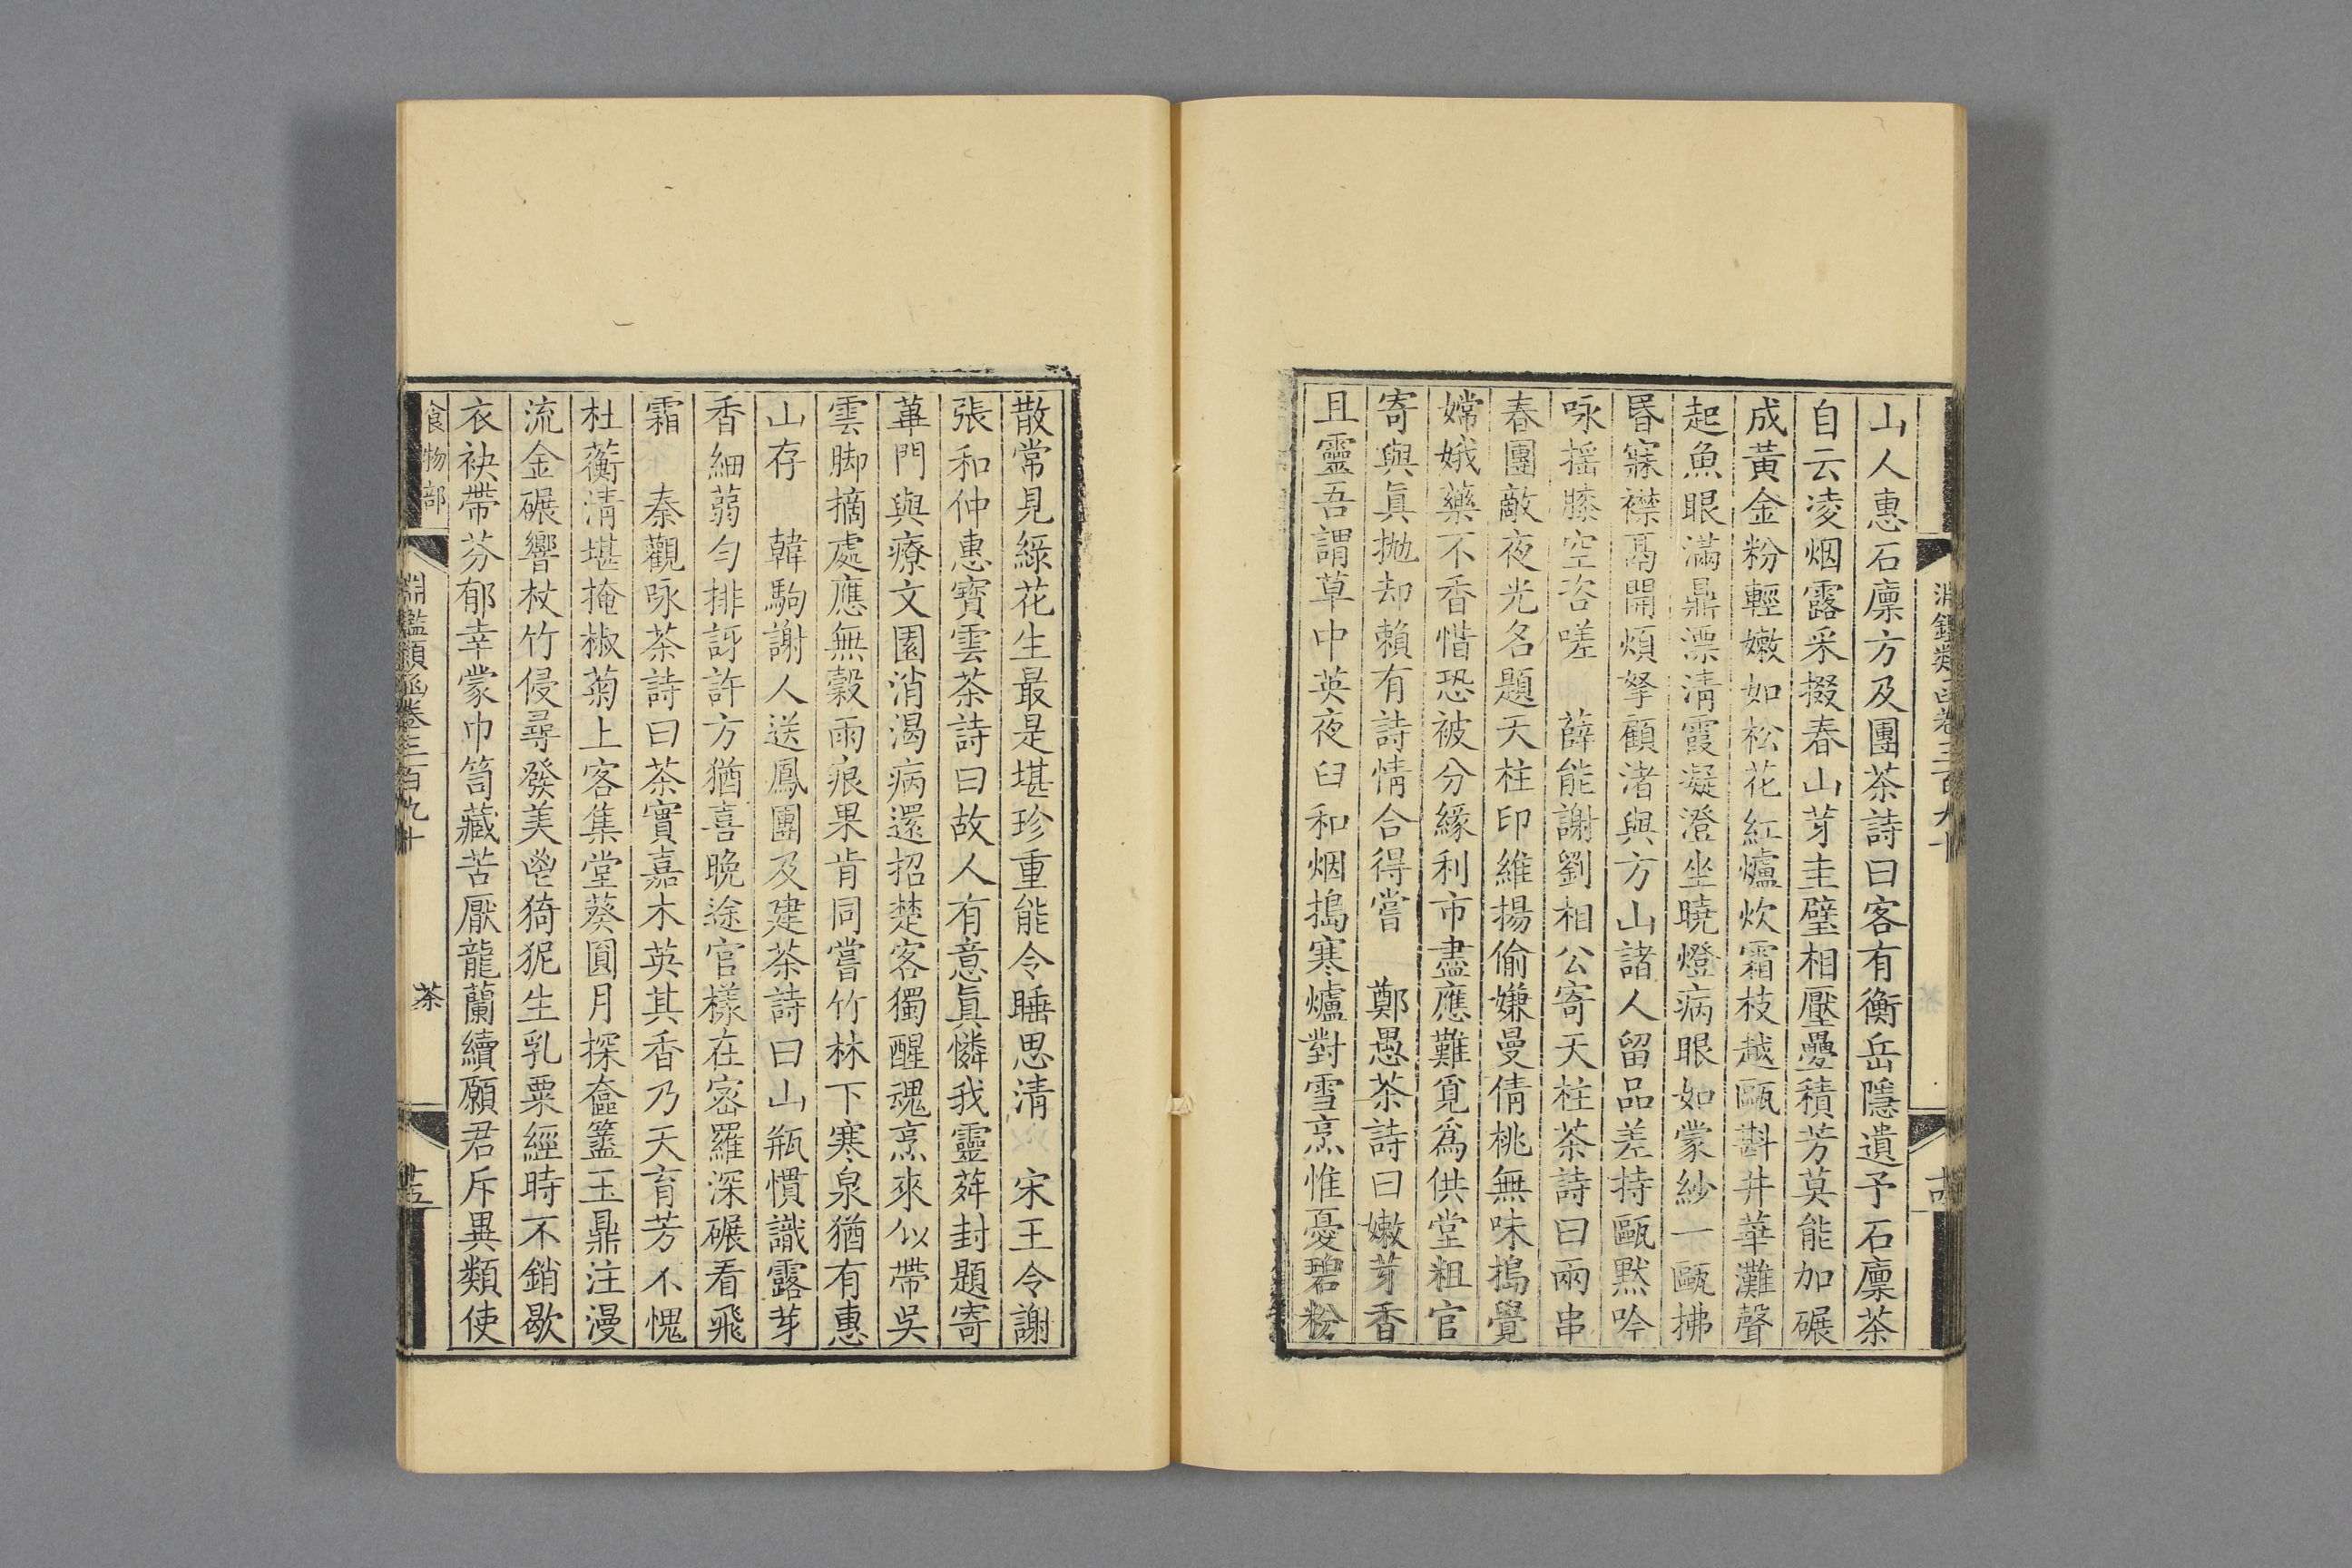 山人惠石廩方及團茶詩曰客有衡岳隱遺予石廩茶
自云凌烟露采掇春山芽圭璧相壓疊積芳莫能加碾
成黃金粉輕嫩如松花紅爐炊霜枝越甌斟井華灘聲
起魚眼滿鼎漂清霞凝澄坐曉燈病眼如蒙紗一甌拂
昬寐襟鬲開煩拏顧渚與方山諸人留品差持甌默吟
咏揺膝空咨嗟 薛能謝劉相公寄天柱茶詩曰兩串
春團敵夜光名題天柱印維揚偷嫌曼倩桃無味搗覺
嫦娥藥不香惜恐被分緣利市盡應難覓爲供堂粗官
寄與眞拋却賴有詩情合得嘗 鄭愚茶詩曰嫩芽香
且靈吾謂草中英夜臼和烟搗寒爐對雪烹惟憂碧粉
散常見綠花生最是堪珍重能令睡思清 宋王令謝
張和仲惠寶雲茶詩曰故人有意眞憐我靈荈封題寄
蓽門與療文園消渴病還招楚客獨醒魂烹來似帶吳
雲脚摘處應無穀雨痕果肯同嘗竹林下寒泉猶有惠
山存 韓駒謝人送鳳團及建茶詩曰山瓶慣識露芽
香細蒻勻排訝許方猶喜晚途官樣在密羅深碾看飛
霜 秦觀咏茶詩曰茶實嘉木英其香乃天育芳不愧
杜蘅清堪掩椒菊上客集堂葵圓月探奩籃玉鼎注漫
流金碾響杖竹侵尋發美鬯猗狔生乳粟經時不銷歇
衣袂帶芬郁幸蒙巾笥藏苦厭龍蘭續願君斥異類使
食物部 淵鑑類函卷三百九十 茶